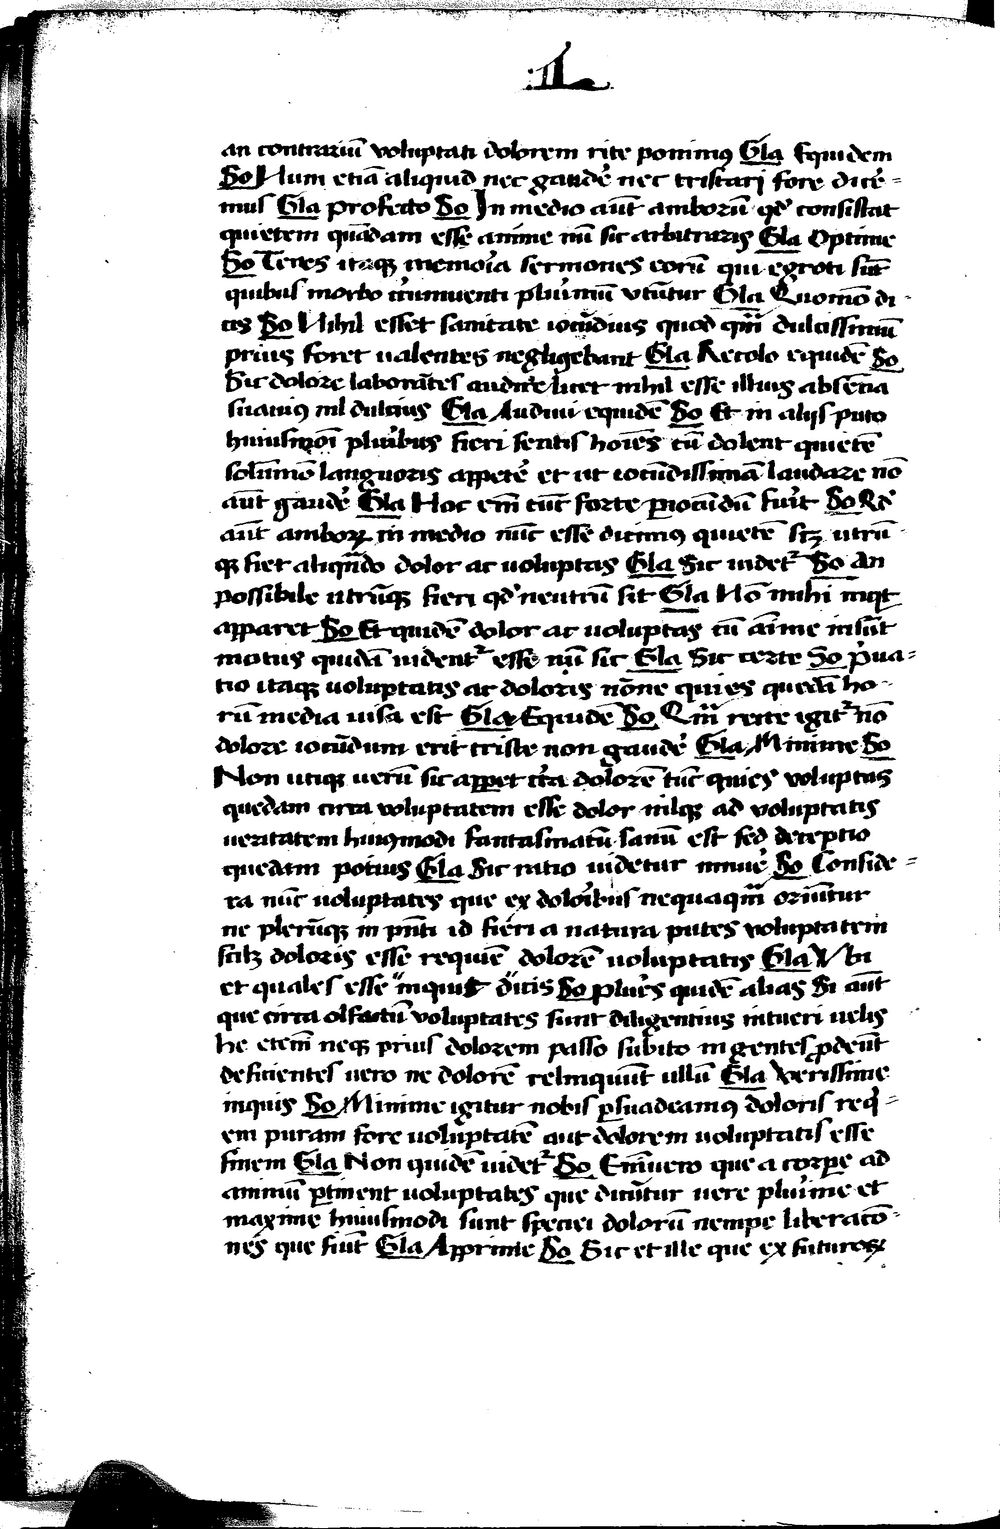 an contrariū voluptati dolorem rite ponimꝰ Gla Equidem
So Num etiā aliquid nec gaudē nec tristari fore dicē=
mus Gla profecto So In medio aūt amborū qđ consistat
quietem quādam esse anime nū sic arbitraris Gla Optime
So Tenes itaqꝫ memoīa sermones eorū qui egroti sūt
quibus morbo cīrumuenti plurimū vtūtur Gla Quomō di-
cis So Nihil esset sanitate iocūdius quod qm̄ dulcissimū
prius foret ualentes negligebant Gla Recolo equidē So
Sic dolore laborātes audire licet nihil esse illius absētia
suauiꝰ nil dulcius Gla Audiui equidē So Et in alijs puto
huiusmōi pluribus fieri sentis hoīes cū dolent quietē
solūmō languoris appetē et ut iocūdissimā laudare nō
aūt gaudē Gla Hoc em̄ tūc forte ꝑiocūdū fuit So Rē
aūt amborꝝ in medio nūc esse dicimꝰ quietē sꝫ utrū-
qꝫ fiet aliqn̄do dolor ac uoluptas Gla Sic uidetᷣ So An
possibile utrūqꝫ fieri qđ neutrū sit Gla Nō mihi inqͭ
apparet So Et quidē dolor ac uoluptas cū aīme insūt
motus quidā uidentᷣ esse nū sic Gla Sic certe So pͥua=
tio itaqꝫ uoluptatis ac doloris nōne quies quedā ho-
rū media uisa est Gla Equidē So Qm̄ recte igitᷣ nō
dolore iocūdum erit triste non gaudē Gla Minime So
Non utiqꝫ uerū sic appet cīra dolorē tūc quies voluptas
quedam circa voluptatem esse dolor nilqꝫ ad voluptatis
ueritatem huiꝰmodi fantasmatū sanū est sed deceptio
quedam potius Gla Sic ratio uidetur innuē So Conside=
ra nūc uoluptates que ex doloībus nequaqm̄ oriūtur
ne plerūqꝫ in pn̄ti id fieri a natura putes voluptatem
scilꝫ doloris esse requiē dolorē uoluptatis Gla Vbi
et quales esse inquit dicis So plures quidē alias Si aūt
que circa olfactū voluptates sunt diligentius intueri uelis
he etem̄ neqꝫ prius dolorem passo subito ingentes ꝓdeūt
deficientes uero ne dolorē relinquūt ullū Gla Verissime
inquis So Minime igitur nobis ꝑsuadeamꝰ doloris reqͥ=
em puram fore uoluptatē aut dolorem uoluptatis esse
finem Gla Non quidē uidetᷣ So Enīuero que a corpe ad
animū ꝑtinent uoluptates que dicūtur uere plurime et
maxime huiusmodi sunt speciei dolorū nempe liberatō-
nes que fiūt Gla Apprime So Sic et ille que ex futurorꝝ